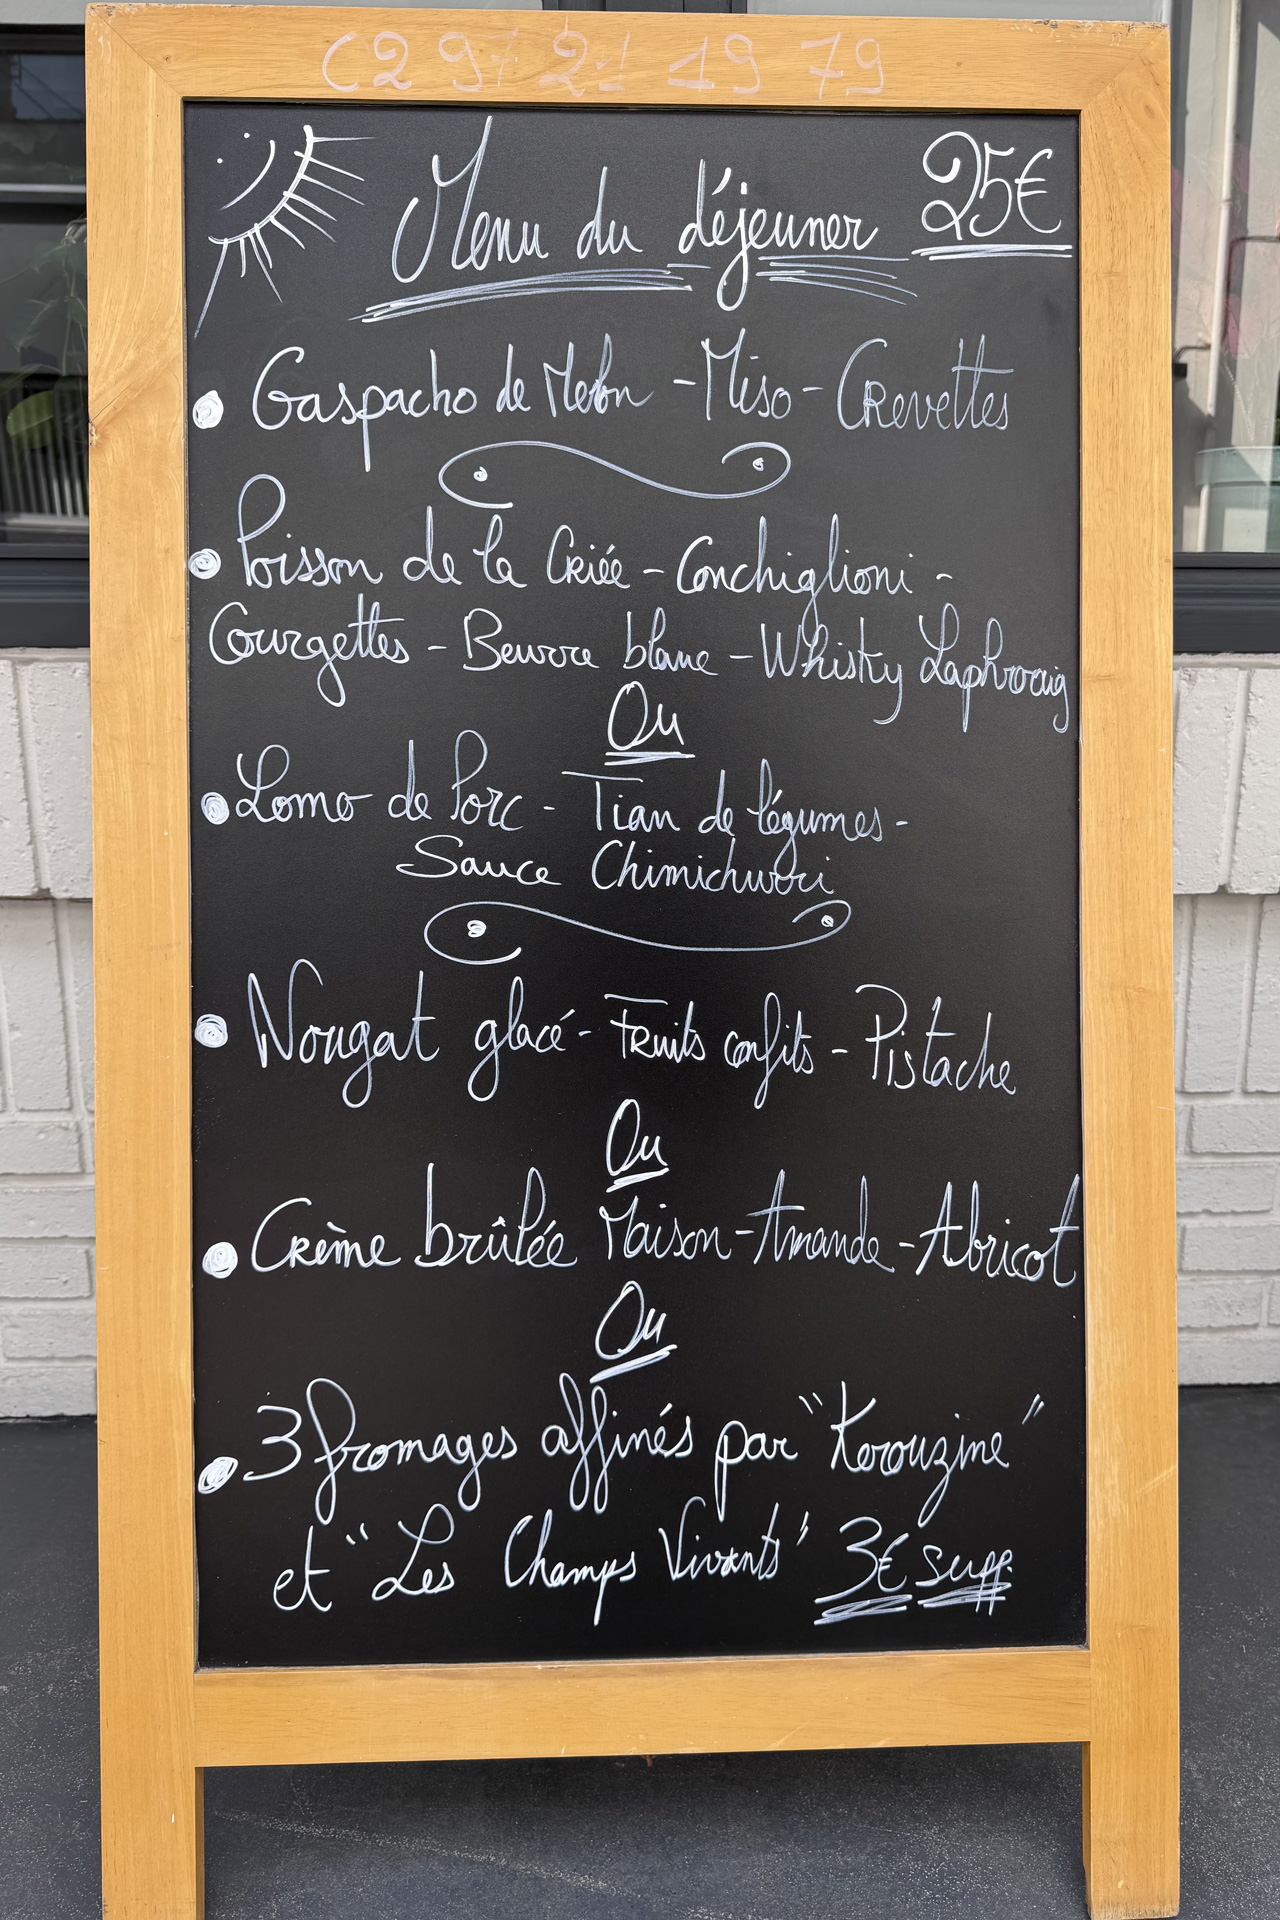 02 97 21 19 79
Menu du déjeuner 25€
Gaspacho de Melon - Miso - Crevettes
Poisson de la Criée - Conchiglioni -
Courgettes - Beurre blanc - Whisky Laphroaig
Ou
Lomo de Porc - Tian de légumes -
Sauce Chimichurri
Nougat glacé - Fruits confits - Pistache
Ou
Crème brûlée Maison - Amande - Abricot
Ou
3 fromages affinés par "Kerouzine"
et "Les Champs Vivants" 3€ supp.